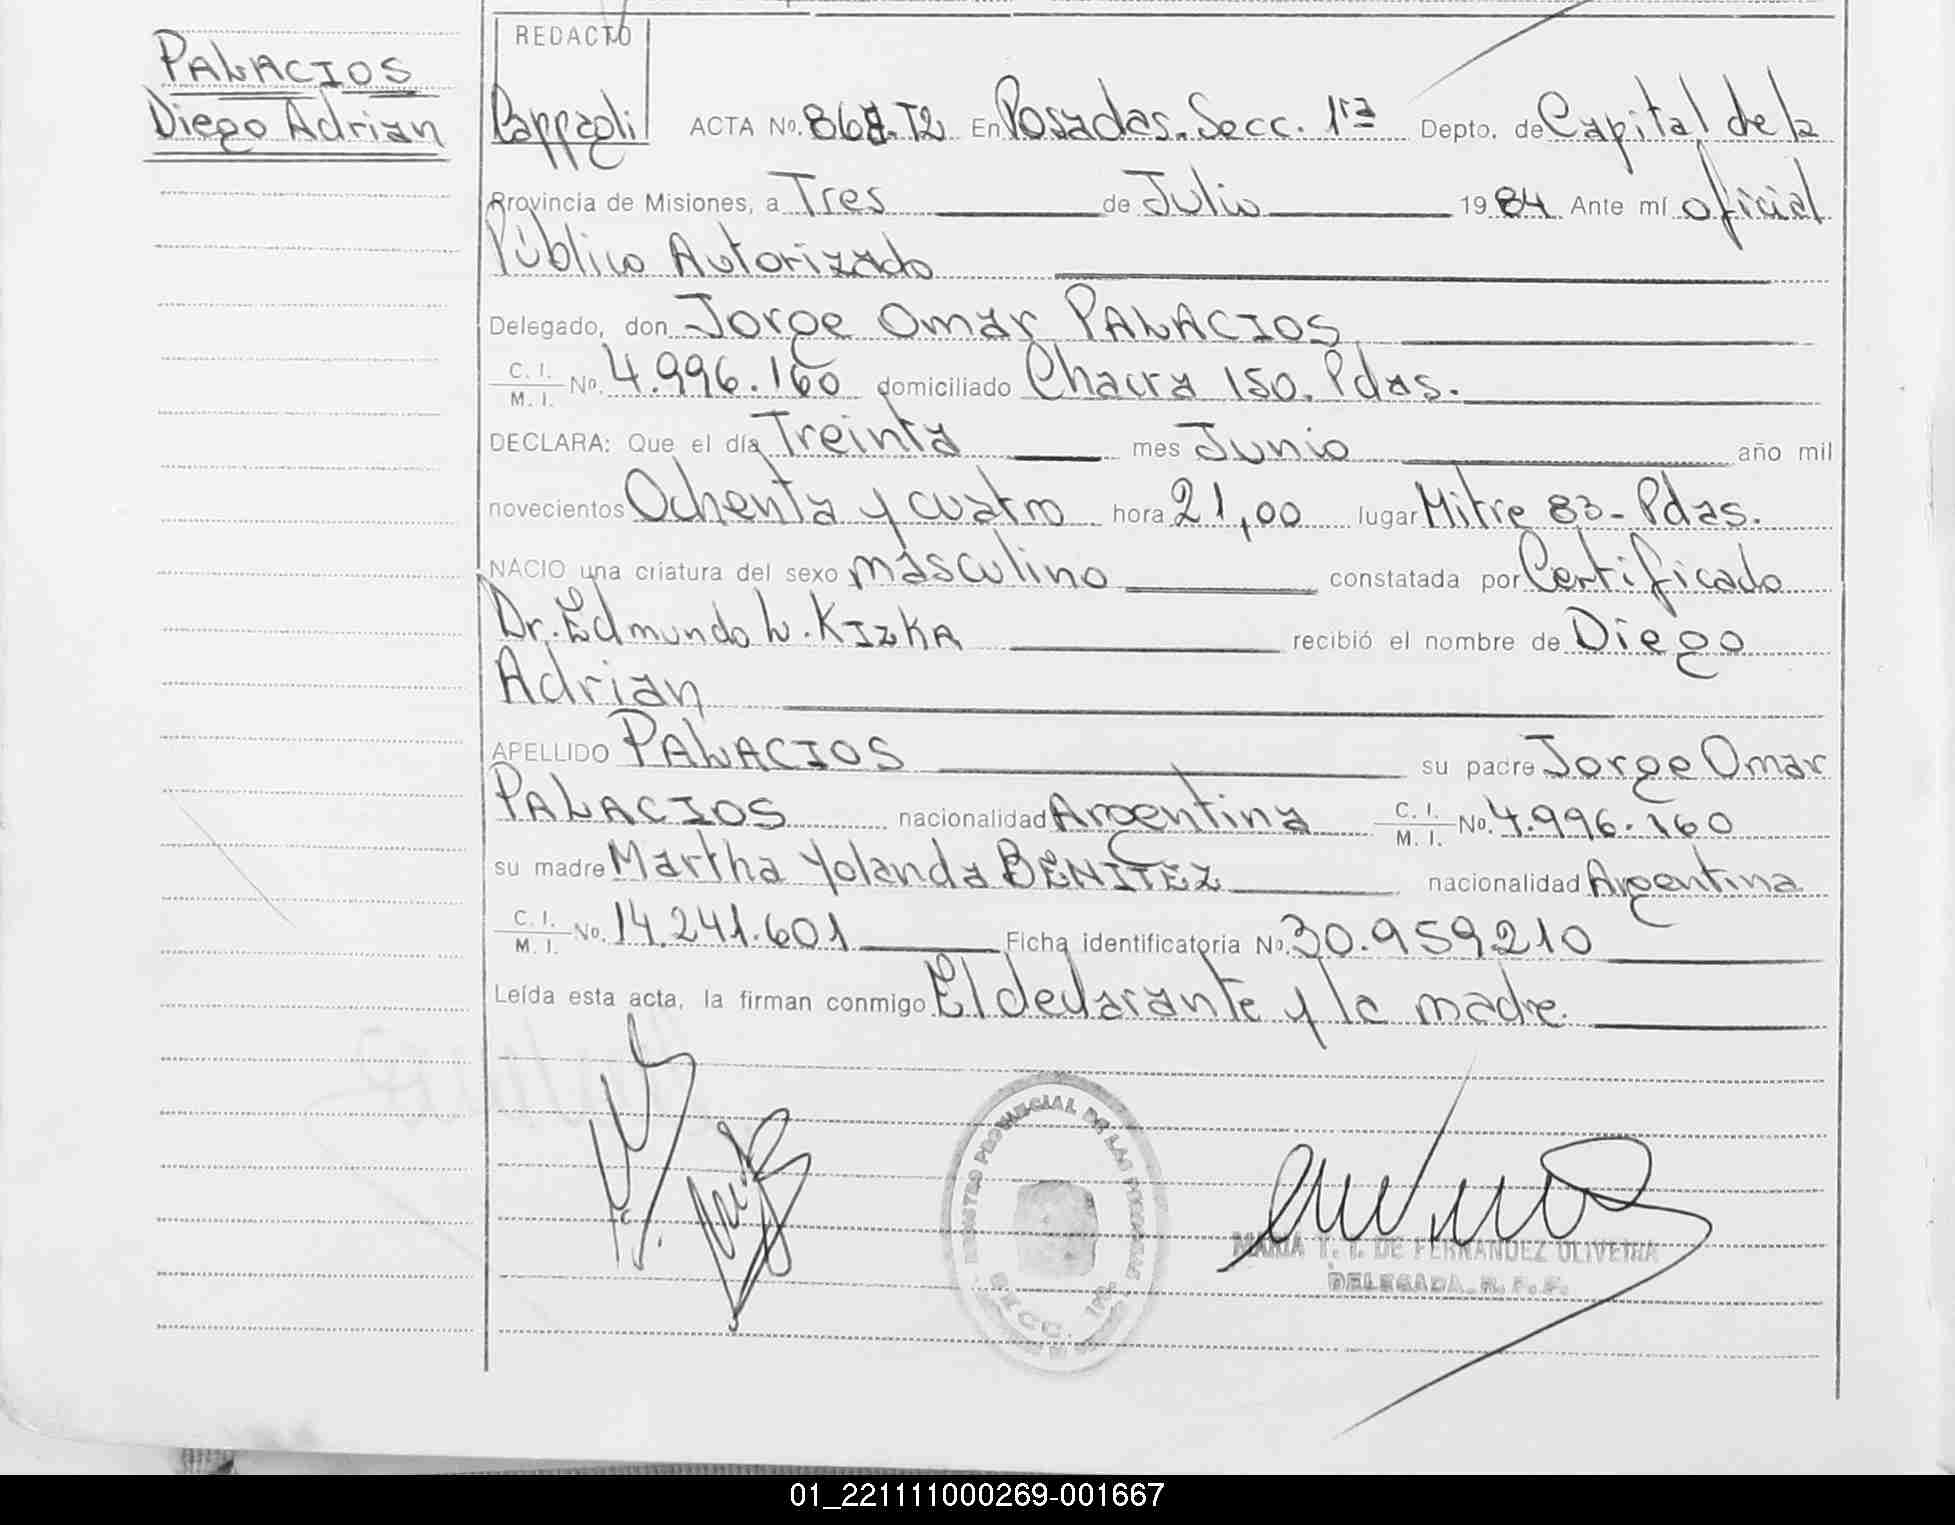 PALACIOS
Diego Adrian
REDACTO
Pappaoli
ACTA No. 868. T2 En Posadas. Secc. 1ra Depto. de Capital de la
Provincia de Misiones, a Tres de Julio 1984 Ante mí oficial
Público Autorizado
Delegado, don Jorge Omar PALACIOS
C. I.
M. I. No. 4.996.160 domiciliado Chacra 150. Pdas.
DECLARA: Que el día Treinta mes Junio año mil
novecientos Ochenta y cuatro hora 21,00 lugar Mitre 83 - Pdas.
NACIO una criatura del sexo masculino constatada por Certificado
Dr. Edmundo L. KIZKA recibió el nombre de Diego
Adrian
APELLIDO PALACIOS su padre Jorge Omar
PALACIOS nacionalidad Argentina C. I.
M. I. No. 4.996.160
su madre Martha Yolanda BENITEZ nacionalidad Argentina
C. I.
M. I. No. 14.241.601 Ficha identificatoria No. 30.959210
Leída esta acta, la firman conmigo El declarante y la madre.
REGISTRO PROVINCIAL DE LAS PERSONAS
SECC. 1ra.
MARIA T. I. DE FERNANDEZ OLIVEIRA
DELEGADA. R. P. P.
01_221111000269-001667